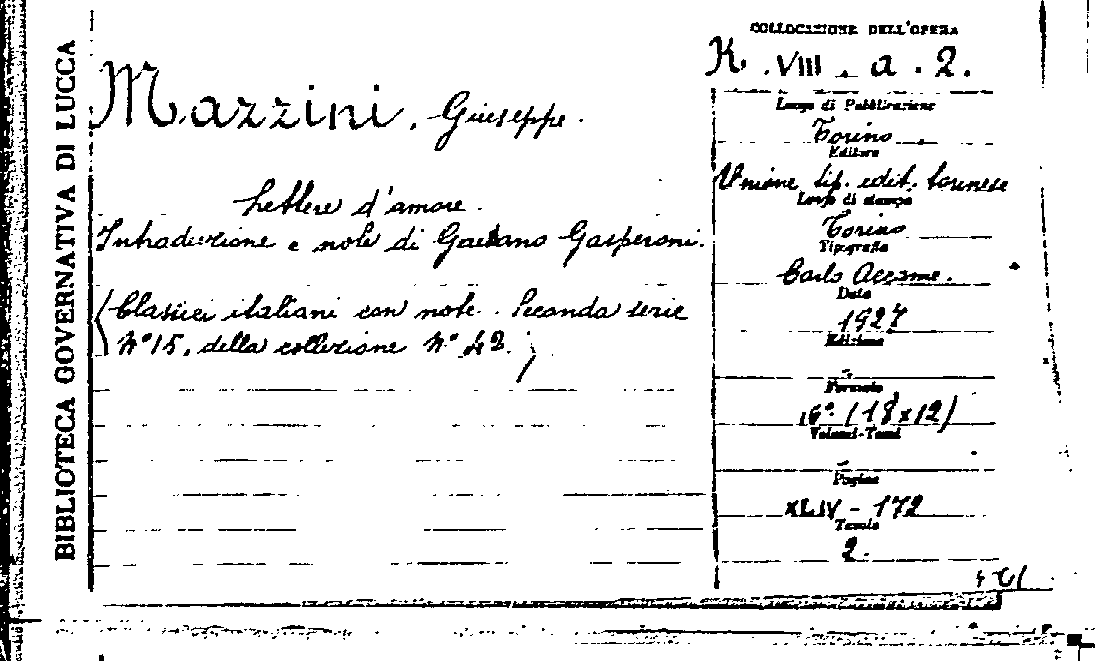 BIBLIOTECA GOVERNATIVA DI LUCCA
Mazzini, Giuseppe.
Lettere d'amore.
Introduzione e note di Gaetano Gasperoni.
(Classici italiani con note. Seconda serie
N° 15, della collezione N° 42.)
COLLOCAZIONE DELL'OPERA
K. VIII. a. 2.
Luogo di Pubblicazione
Torino
Editore
Unione tip. edit. torinese
Luogo di stampa
Torino
Tipografia
Carlo Accame.
Data
1927
Edizione
-
Formato
16° (18x12)
Volumi-Tomi
-
Pagine
XLIV - 172
Tavole
2.